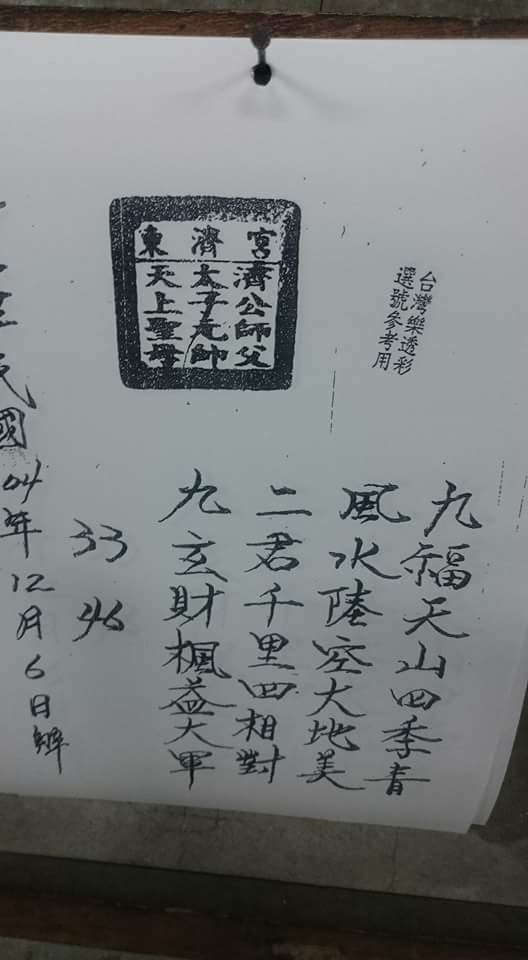 東濟宮
濟公師父
太子元帥
天上聖母
台灣樂透彩
選號參考用
九福天山四季青
風水陸空大地美
二君千里四相對
九玄財楓益大軍
33
46
民國04年12月6日